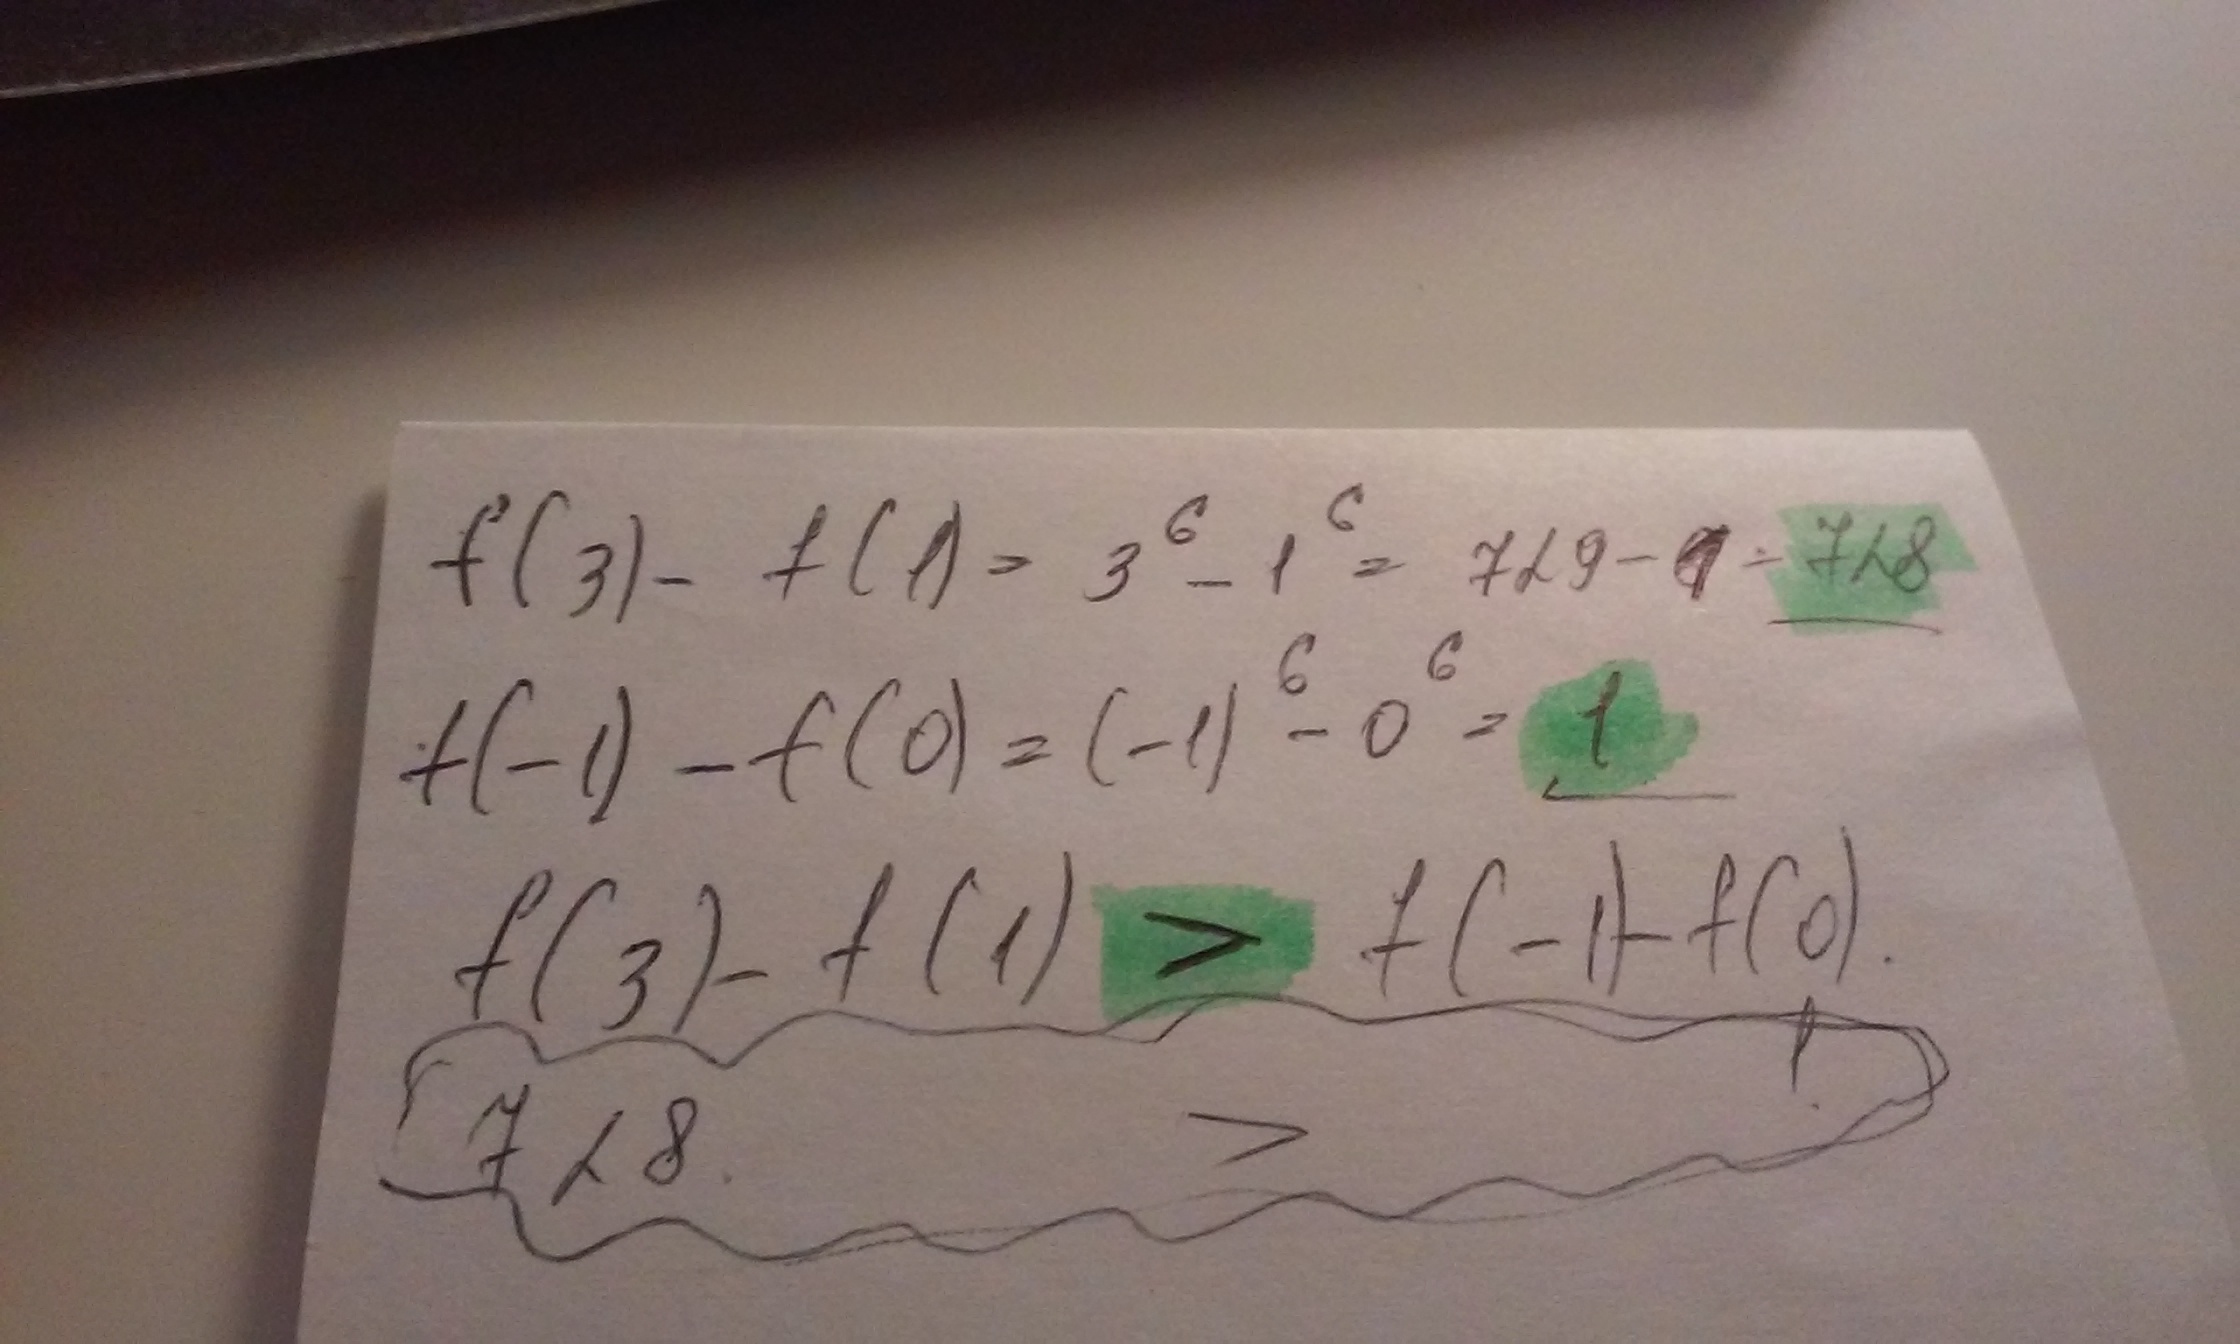 f(3) - f(1) = 3⁶ - 1⁶ = 729 - 1 = 728
f(-1) - f(0) = (-1)⁶ - 0⁶ = 1
f(3) - f(1) > f(-1) - f(0).
728. > 1